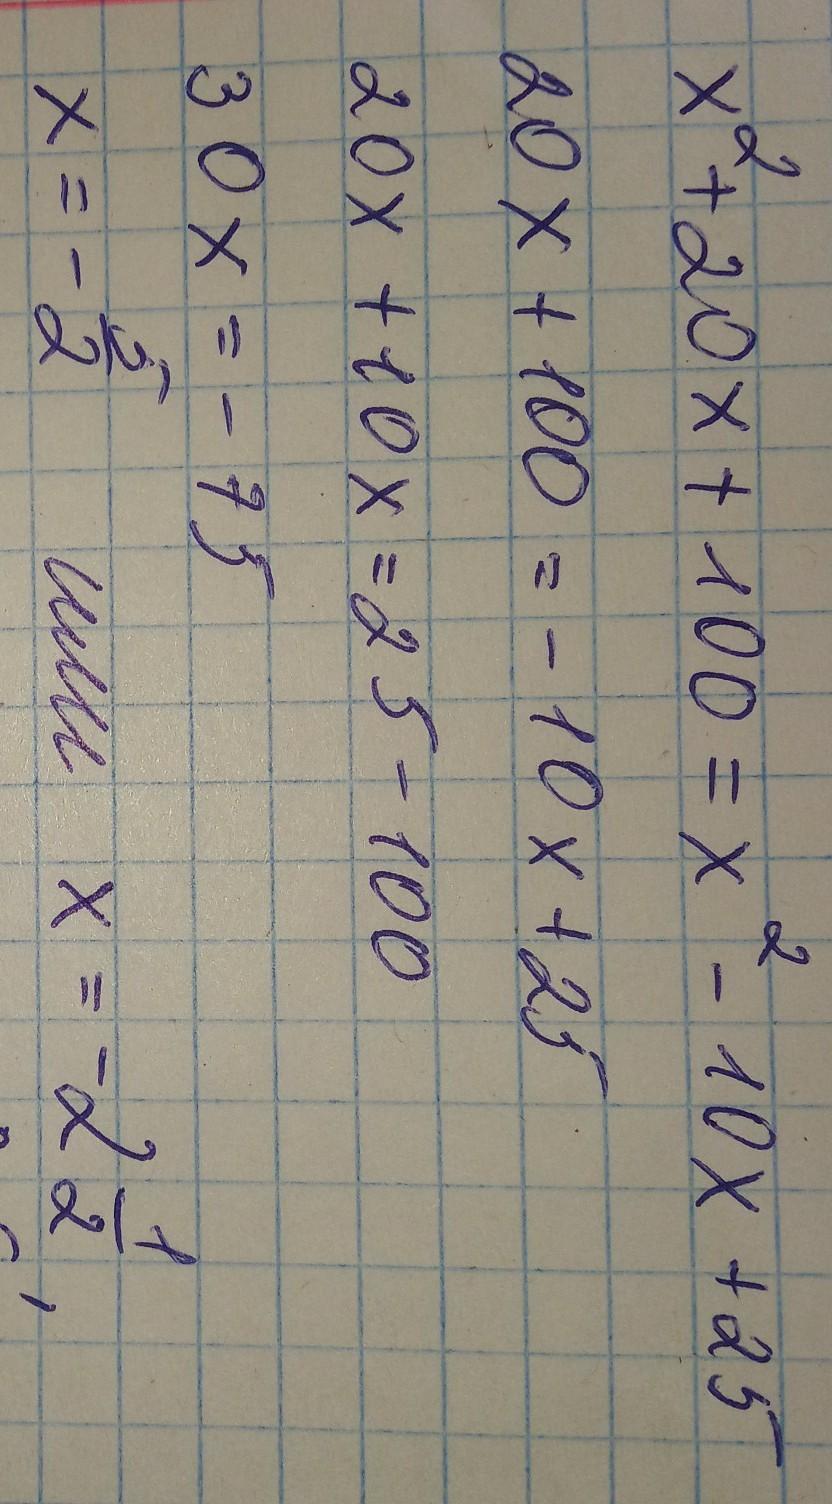 x² + 20x + 100 = x² - 10x + 25
20x + 100 = - 10x + 25
20x + 10x = 25 - 100
30x = - 75
x = - 5/2 или x = -2 1/2,